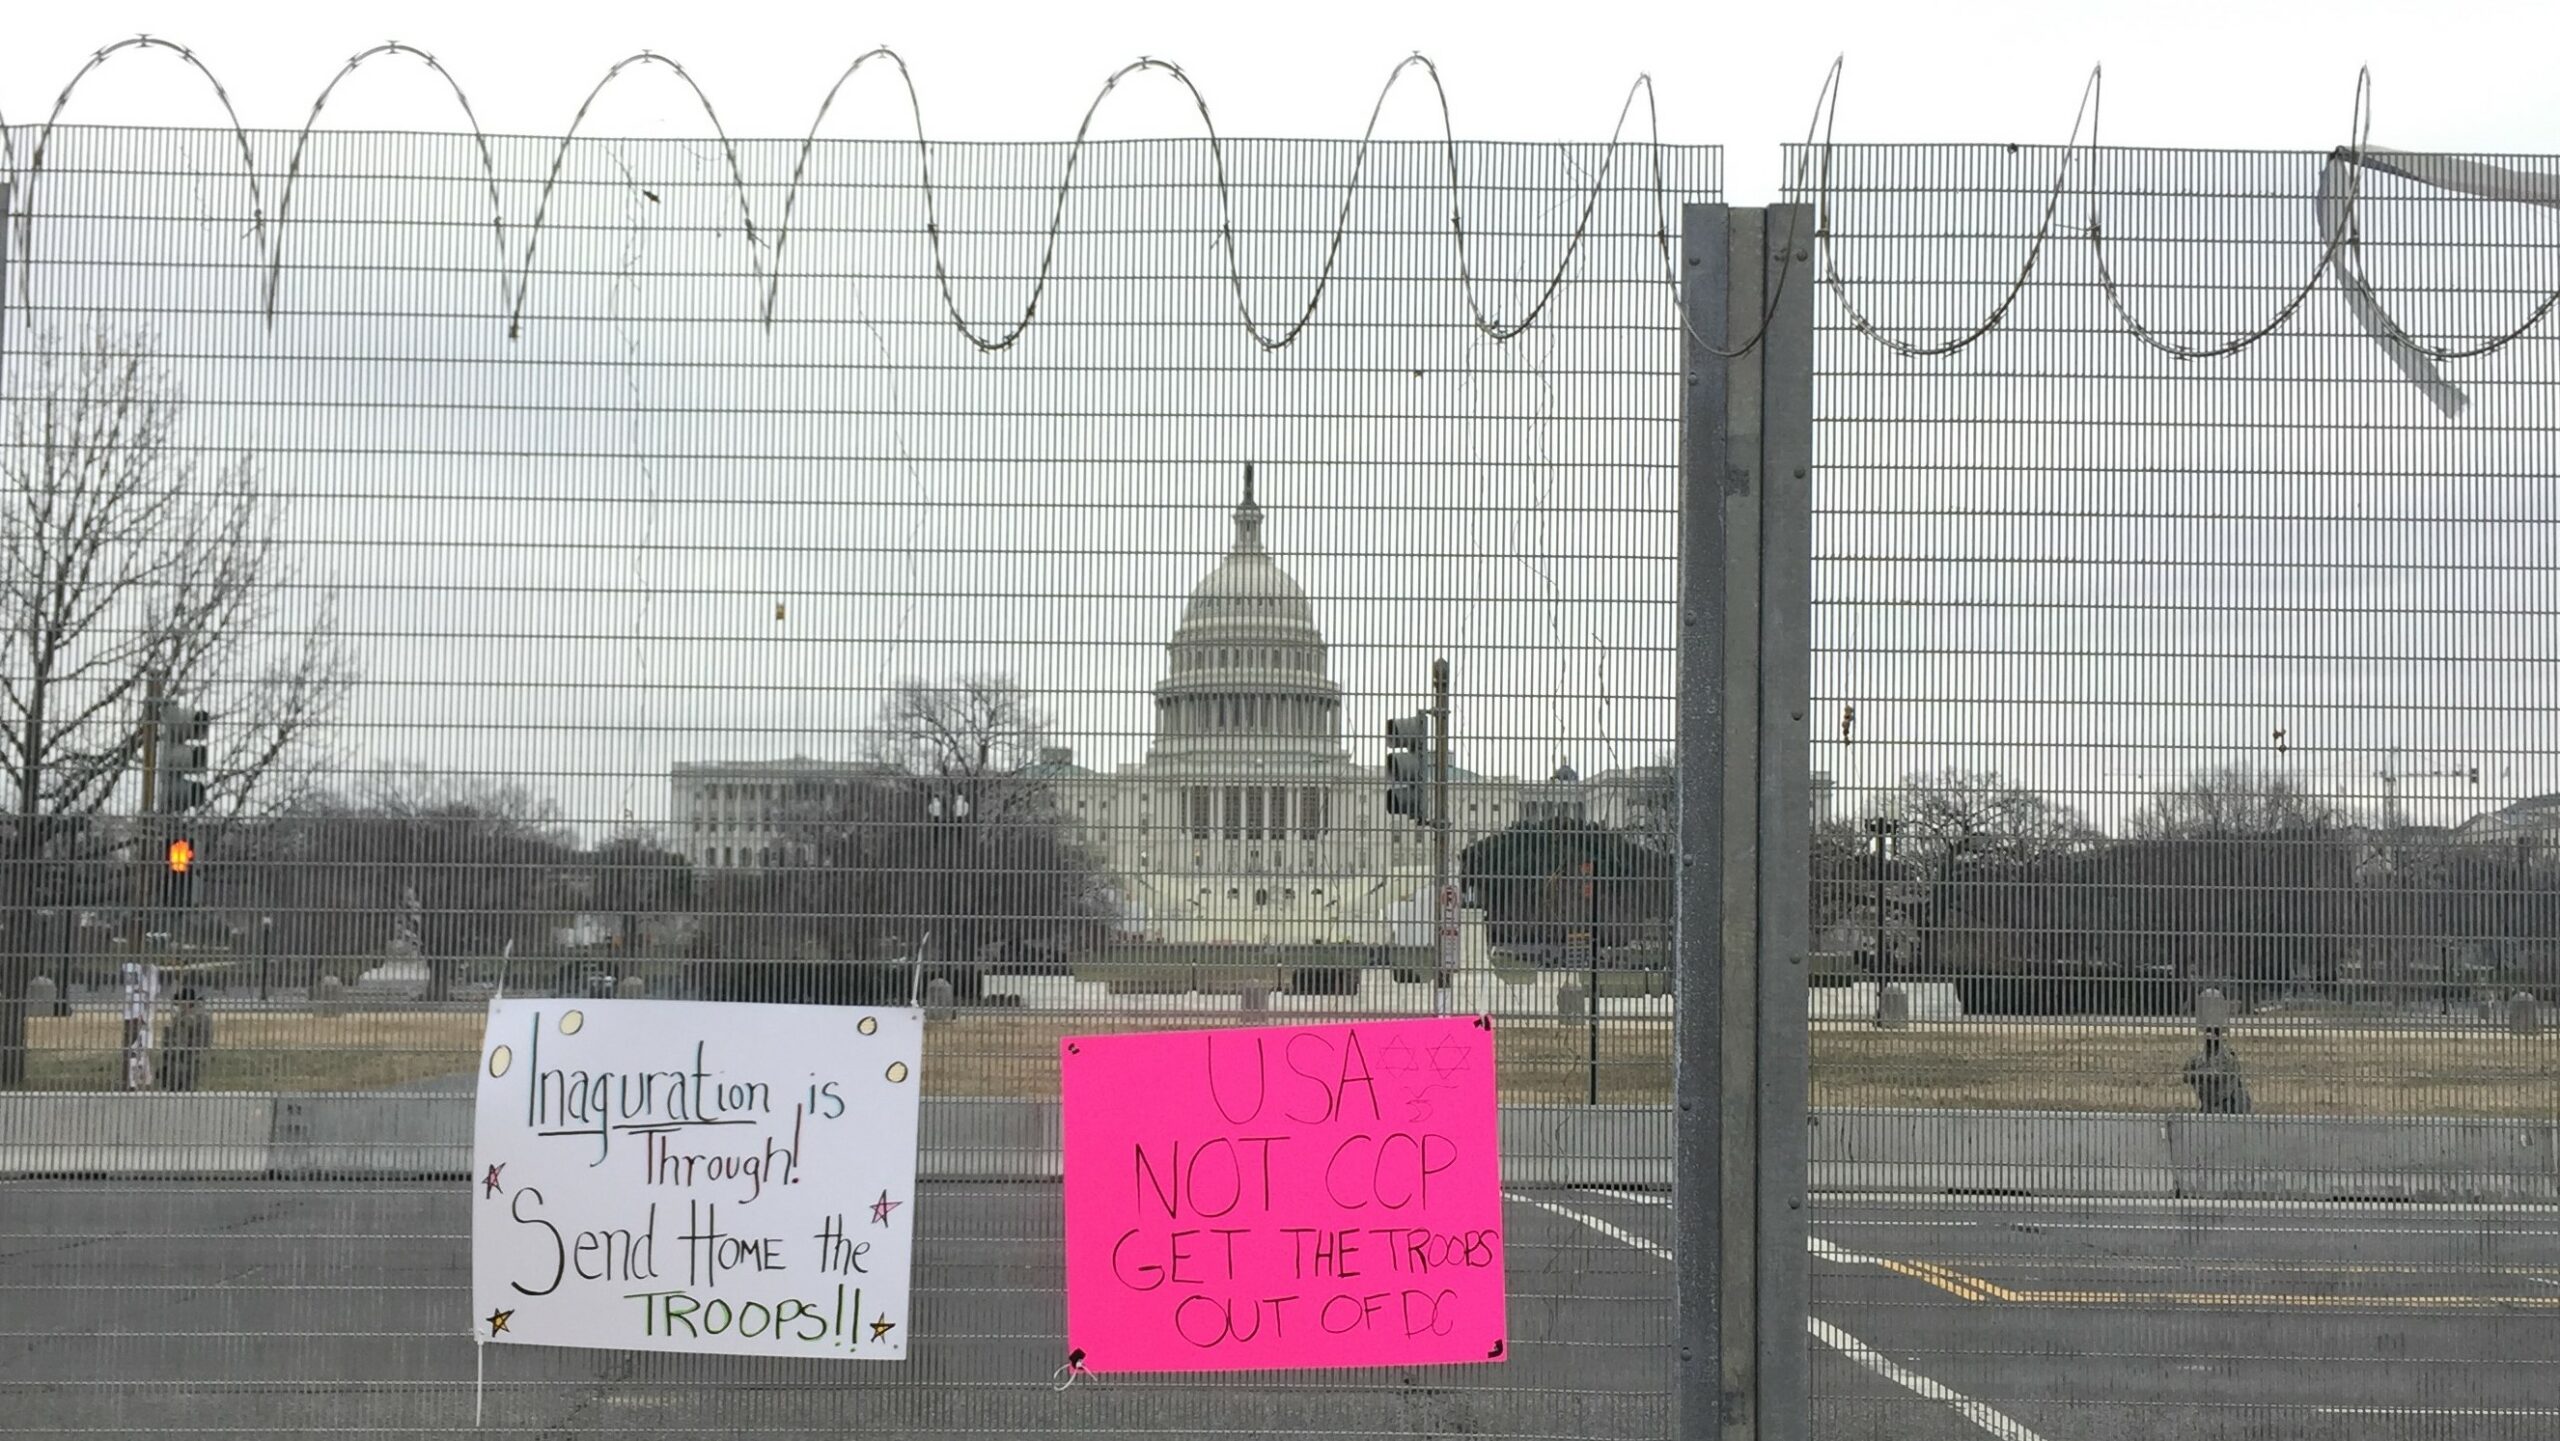 Inaguration is
Through!
Send Home the
TROOPS!!
USA
NOT CCP
GET THE TROOPS
OUT OF DC